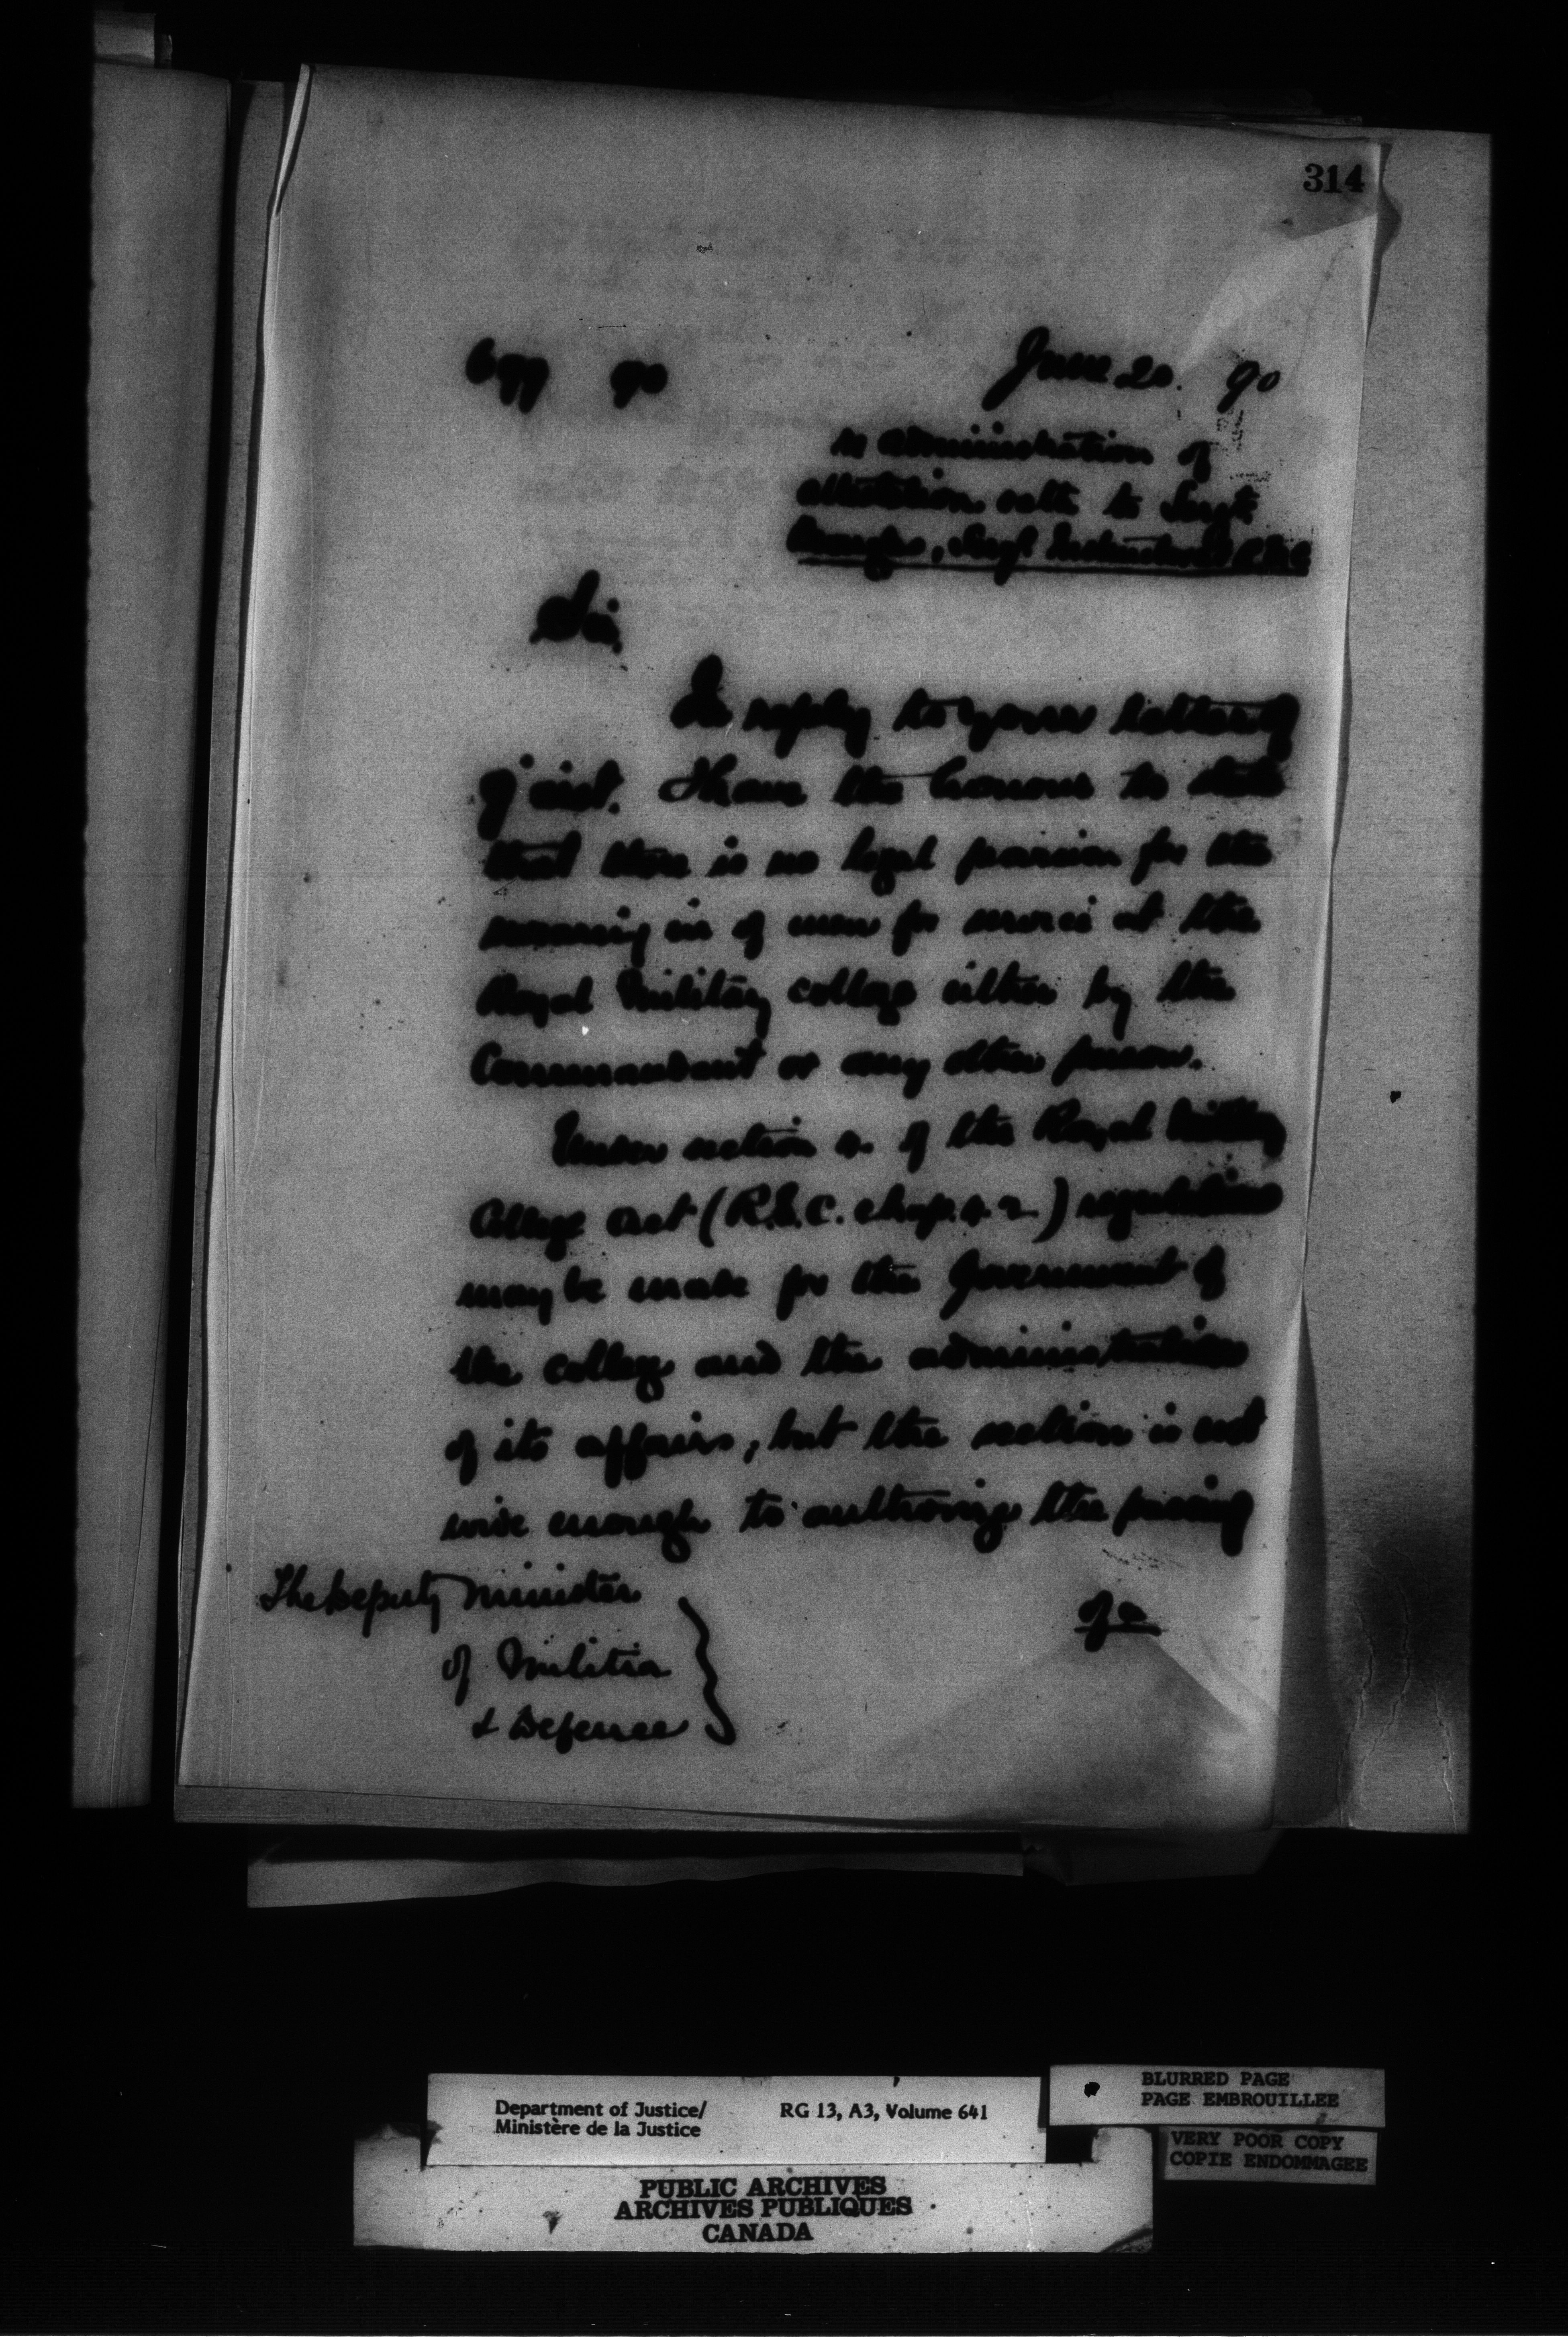 314
677 90 June 20. 90
re administration of
attestation oath to Sergt
Sergt Instructor R.M.C
Sir,
In reply to your letter of
inst. I have the honour to state
that there is no legal provision for the
swearing in of men for service at the
Royal Military college either by the
Commandant or any other person.
Under section 4 of the Royal Military
College Act (R.S.C. chap. 42) regulations
may be made for the Government of
the college and the administration
of its affairs, but the section is not
wide enough to authorize the passing
The Deputy Minister
of Militia
& Defence
of a
BLURRED PAGE
PAGE EMBROUILLEE
Department of Justice/ RG 13, A3, Volume 641
Ministère de la Justice
VERY POOR COPY
COPIE ENDOMMAGEE
PUBLIC ARCHIVES
ARCHIVES PUBLIQUES
CANADA